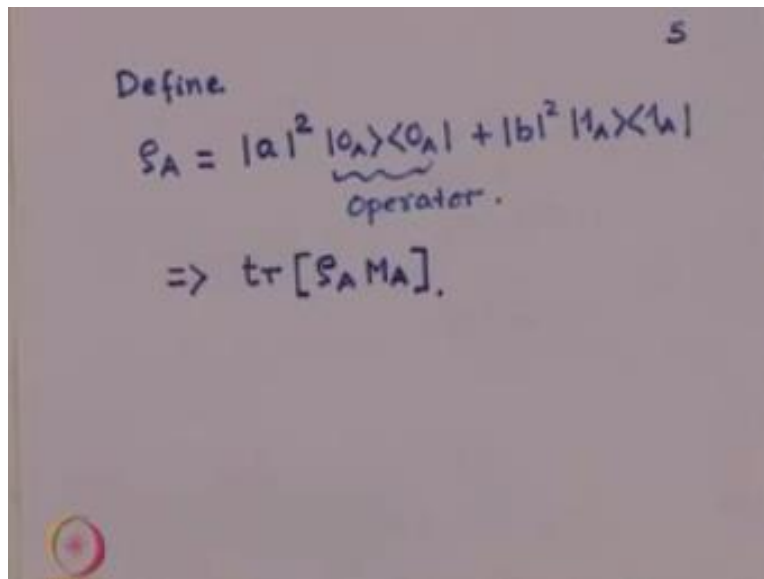 5
Define
ρ_A = |a|² |0_A><0_A| + |b|² |1_A><1_A|
operator.
=> tr[ρ_A M_A].